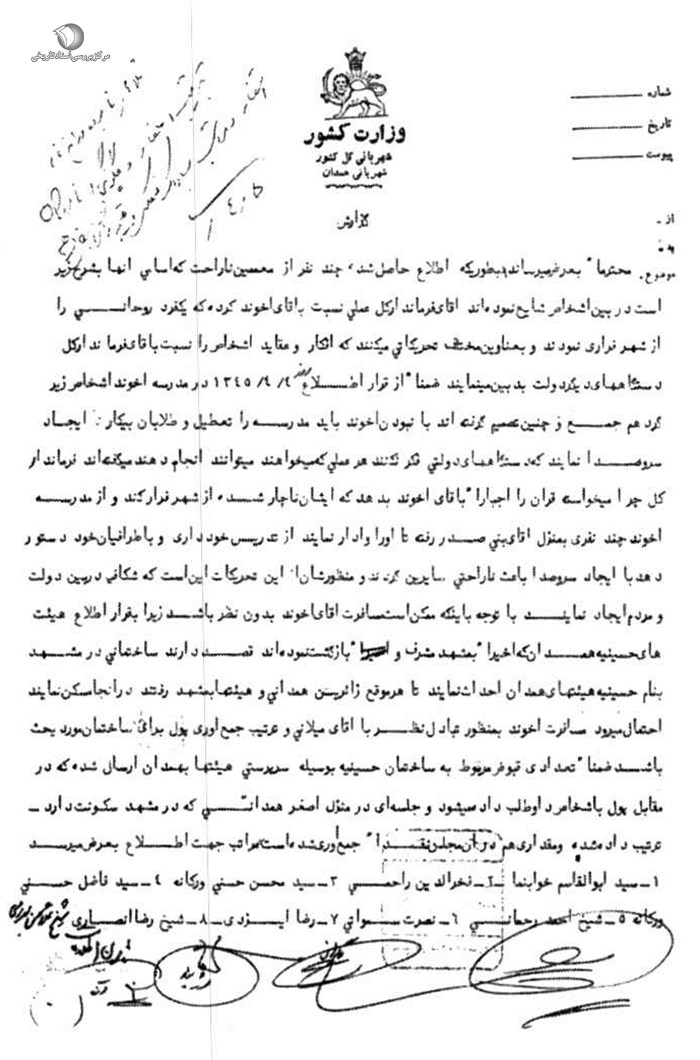 مرکز بررسی اسناد تاریخی
وزارت کشور
شهربانی کل کشور
شهربانی همدان
شماره
تاریخ
پیوست
گزارش
از ـ
به ـ
موضوع.
محترما" بعرض میرساند بطوریکه اطلاع حاصل شده چند نفر از معممین ناراحت که اسامی انها بشرح زیر
است در بین اشخاص شایع نموده اند اقای فرماندارکل عملی نسبت باقای اخوند کرده که یکفرد روحانی را
از شهر فراری نمودند و بعناوین مختلف تحریکاتی میکنند که افکار و عقاید اشخاص را نسبت باقای فرماندارکل
دستگاههای دیگر دولت بدبین مینمایند ضمنا" از قرار اطلاع روز ۱۳٤٥/۹/٤ در مدرسه اخوند اشخاص زیر
گردهم جمع و چنین تصمیم گرفته اند با نبودن اخوند باید مدرسه را تعطیل و طلابان بیکار تا ایجاد
سروصدا نمایند که دستگاههای دولتی فکر نکنند هر عملی که میخواهند میتوانند انجام دهند میگفته اند فرماندار
کل چرا میخواسته قران را اجبارا" باقای اخوند بدهد که ایشان ناچار شده از شهر فرار کند و از مدرسه
اخوند چند نفری بمنزل اقای بنی صدر رفته تا اورا وادار نمایند از تدریس خودداری و باطرافیان خود دستور
دهد با ایجاد سروصدا باعث ناراحتی سایرین گردند و منظورشان از این تحریکات این است که شکافی در بین دولت
و مردم ایجاد نمایند با توجه باینکه ممکن است مسافرت اقای اخوند بدون نظر باشد زیرا بقرار اطلاع هیئت
های حسینیه همدان که اخیرا" بمشهد مشرف و بازگشت نموده اند قصد دارند ساختمانی در مشهد
بنام حسینیه هیئتهای همدان احداث نمایند تا هر موقع زائرین همدانی و هیئتها بمشهد رفتند در انجا سکن نمایند
احتمال میرود مسافرت اخوند بمنظور تبادل نظر با اقای میلانی و ترتیب جمع اوری پول برای ساختمان مورد بحث
باشد ضمنا" تعدادی قبوض مربوط به ساختمان حسینیه بوسیله سرپرستی هیئتها بهمدان ارسال شده که در
مقابل پول باشخاص داوطلب داده میشود و جلسه ای در منزل اصغر همدانی که در مشهد سکونت دارد ـ
ترتیب داده شده ومقداری هم در ان مجلس نقدا" جمع اوری شده است مراتب جهت اطلاع بعرض میرسد
۱ـ سید ابوالقاسم خوابنما ۲ـ فخرالدین راحمی ۳ـ سید محسن حسنی ورکانه ٤ـ سید فاضل حسنی
ورکانه ٥ـ شیخ احمد رحمانی ٦ـ نصرت سواتی ۷ـ رضا ایزدی ۸ـ شیخ رضا انصاری